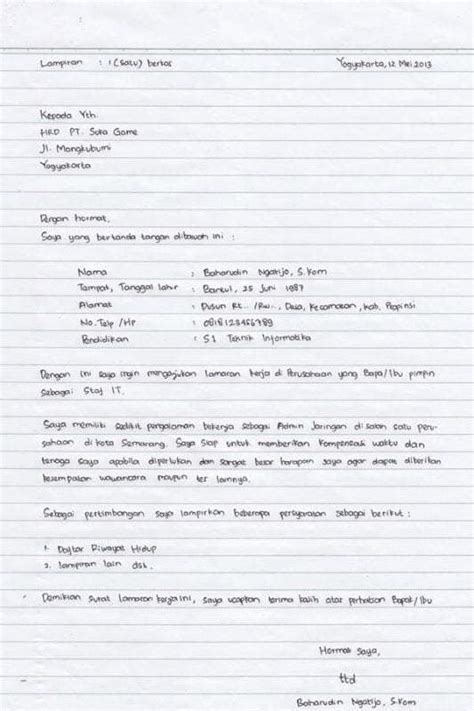 Lampiran : 1 (satu) berkas Yogyakarta, 12 Mei 2013
Kepada Yth.
HRD PT. Suka Game
Jl. Mangkubumi
Yogyakarta
Dengan hormat,
Saya yang bertanda tangan dibawah ini :
Nama : Baharudin Ngatijo, S.Kom
Tempat, Tanggal lahir : Bantul, 25 Juni 1987
Alamat : Dusun Rt.. /Rw.., Desa, Kecamatan, Kab, Propinsi
No.Telp /Hp : 0818123456789
Pendidikan : S1 Teknik Informatika
Dengan ini saya ingin mengajukan lamaran kerja di Perusahaan yang Bapa/Ibu pimpin
sebagai Staf IT.
Saya memiliki sedikit pengalaman bekerja sebagai Admin Jaringan di salah satu peru-
sahaan di kota Semarang. Saya siap untuk memberikan kompensasi waktu dan
tenaga saya apabila diperlukan dan sangat besar harapan saya agar dapat diberikan
kesempatan wawancara maupun tes lainnya.
Sebagai pertimbangan saya lampirkan beberapa persyaratan sebagai berikut :
1. Daftar Riwayat Hidup
2. lampiran lain dsb.
Demikian surat lamaran kerja ini, saya ucapkan terima kasih atas perhatian Bapak/Ibu
Hormat Saya,
ttd
Baharudin Ngatijo, S.Kom